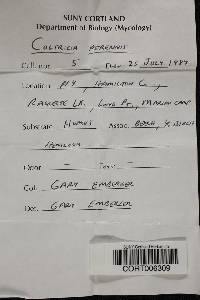 SUNY CORTLAND
Department of Biology (Mycology)
COLTRICIA PERENNIS
Coll. no. 5 Date 25 JULY 1987
Location NY, HAMILTON C.,
RAQUETTE LK., LONG PT.,
Substrate HUMUS Assoc. BEECH, Y. BIRCH
HEMLOCK
Odor — Taste —
Coll. GARY EMBERGER
Det. GARY EMBERGER
CORT006309